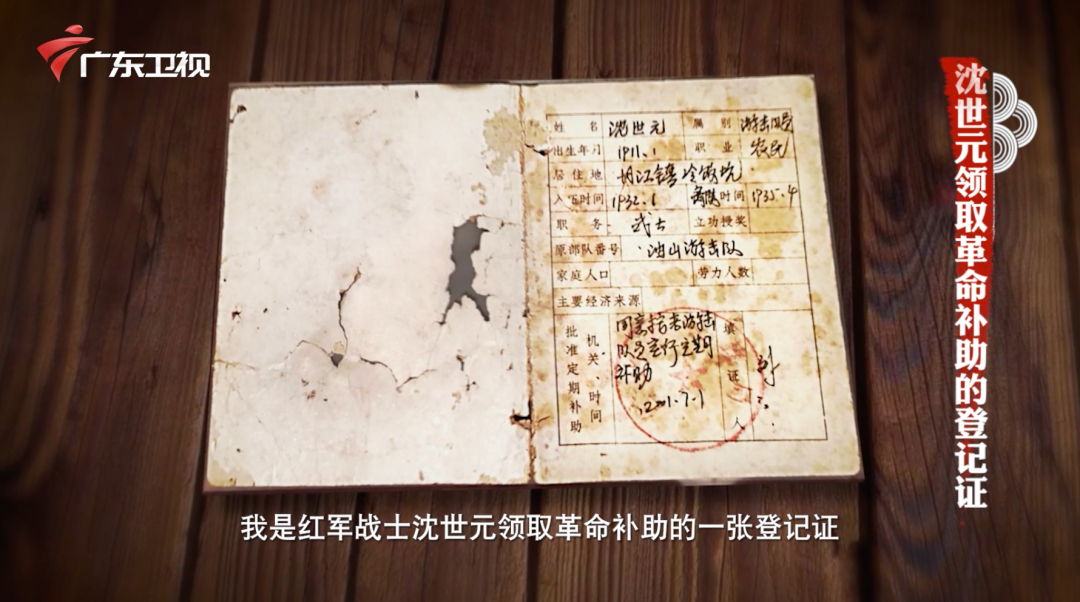 广东卫视
沈世元领取革命补助的登记证
姓 名 沈世元 属 别 游击队员
出生年月 1911.1 职 业 农民
居住地
入伍时间 1932.1 离队时间 1935.4
职 务 战士 立功授奖
原部队番号 油山游击队
家庭人口 劳力人数
主要经济来源
批准定期补助
机关、时间
同意按老游击
队员实行定期
补助
2001.7.1
填证人
我是红军战士沈世元领取革命补助的一张登记证